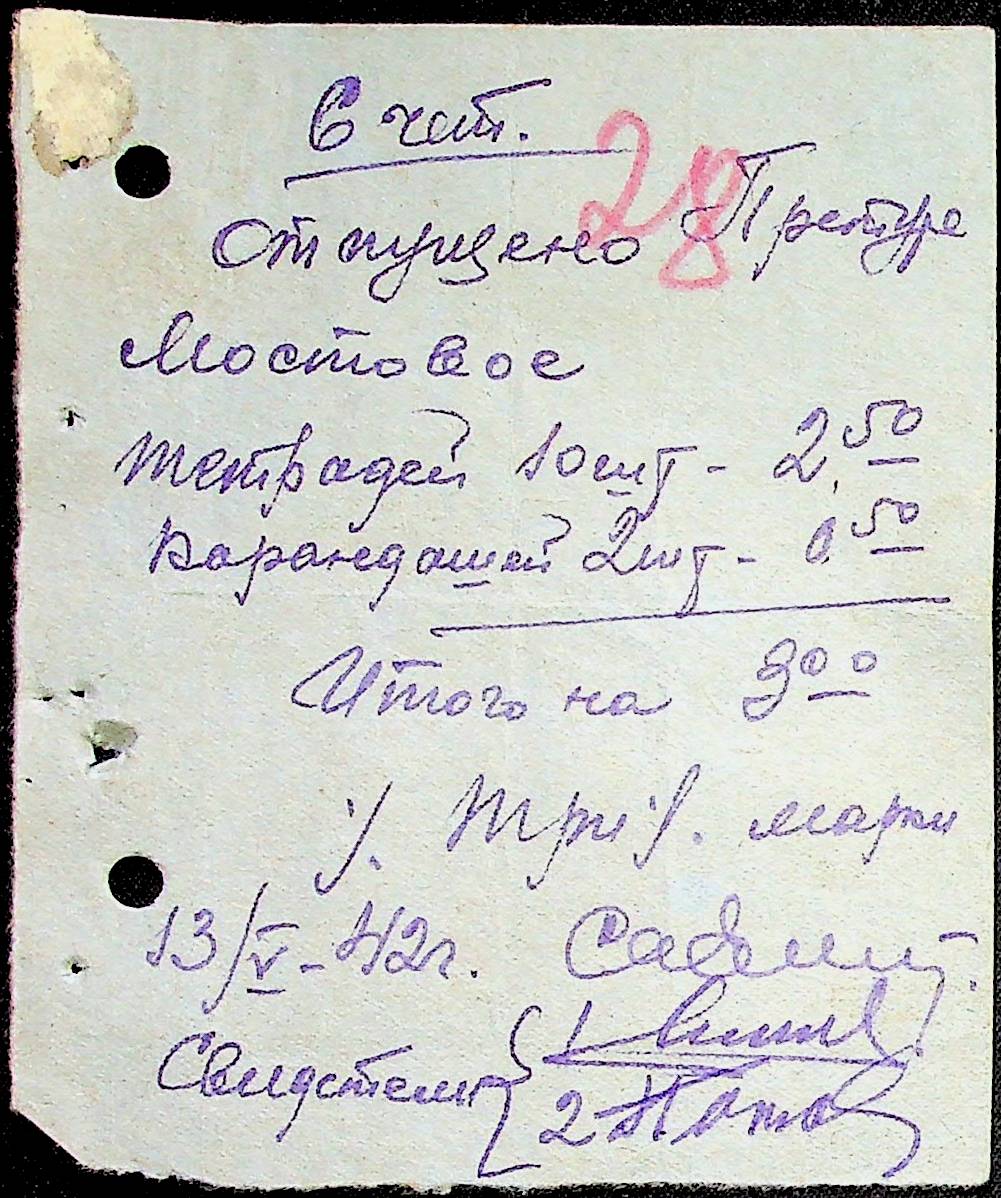 Счет.
28
Отпущено
Мостовое
Тетрадей 10 шт - 2,50
Карандашей 2 шт - 0 50
Итого на 3 00
/. Три /. марки
13/V - 42 г.
Свидетели 1
2